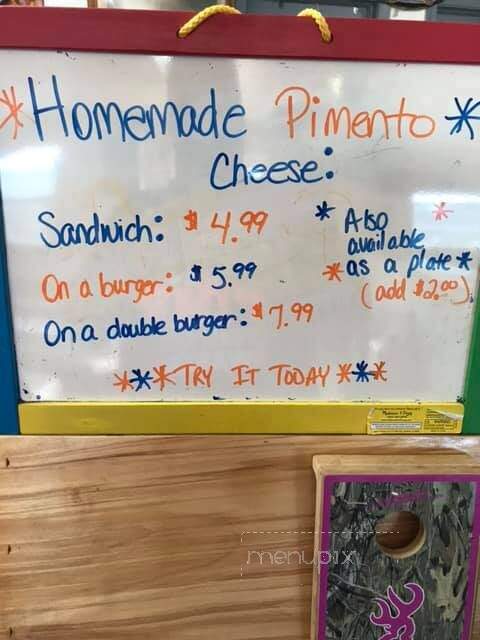 *Homemade Pimento*
Cheese:
Sandwich: $4.99
On a burger: $5.99
On a double burger: $7.99
* Also *
available
*as a plate*
(add $2.00)
***TRY IT TODAY***
menupix